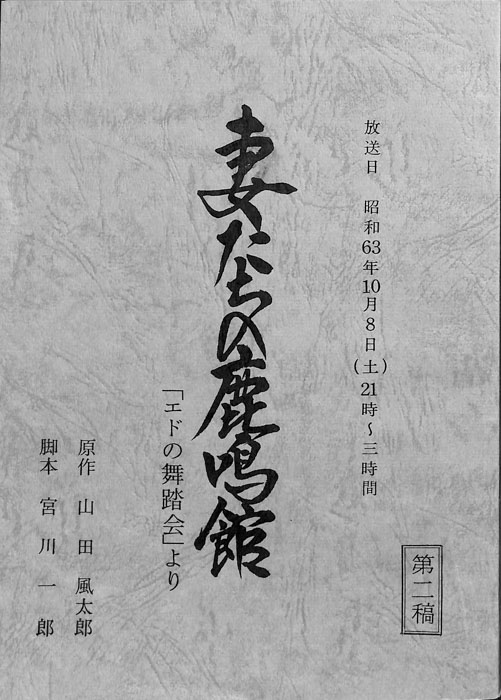 放送日　昭和63年10月8日(土)21時～三時間
第二稿
妻たちの鹿鳴館
「エドの舞踏会」より
原作　山田風太郎
脚本　宮川一郎